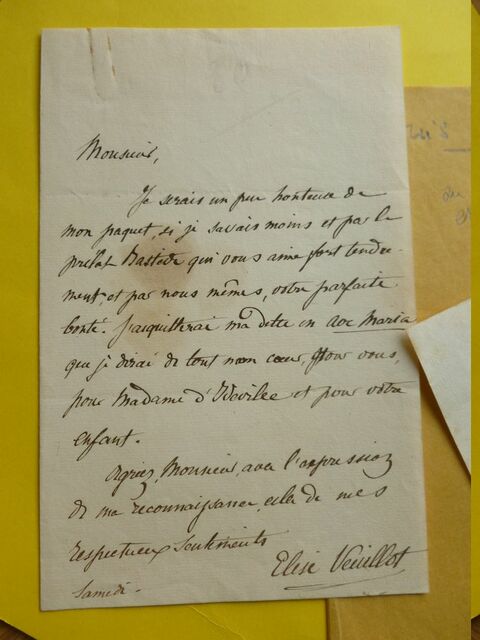 Monsieur,
Je serais un peu honteuse de
mon paquet, si je savais moins et par le
prélat Bastide qui vous aime fort tendre-
ment, et par nous mêmes, votre parfaite
bonté. J'acquitterai ma dette en ave Maria
que je dirai de tout mon cœur, pour vous,
pour Madame et pour votre
enfant.
Agréez, Monsieur, avec l'expression
de ma reconnaissance, celle de mes
respectueux sentiments
Elise Veuillot
Samedi.